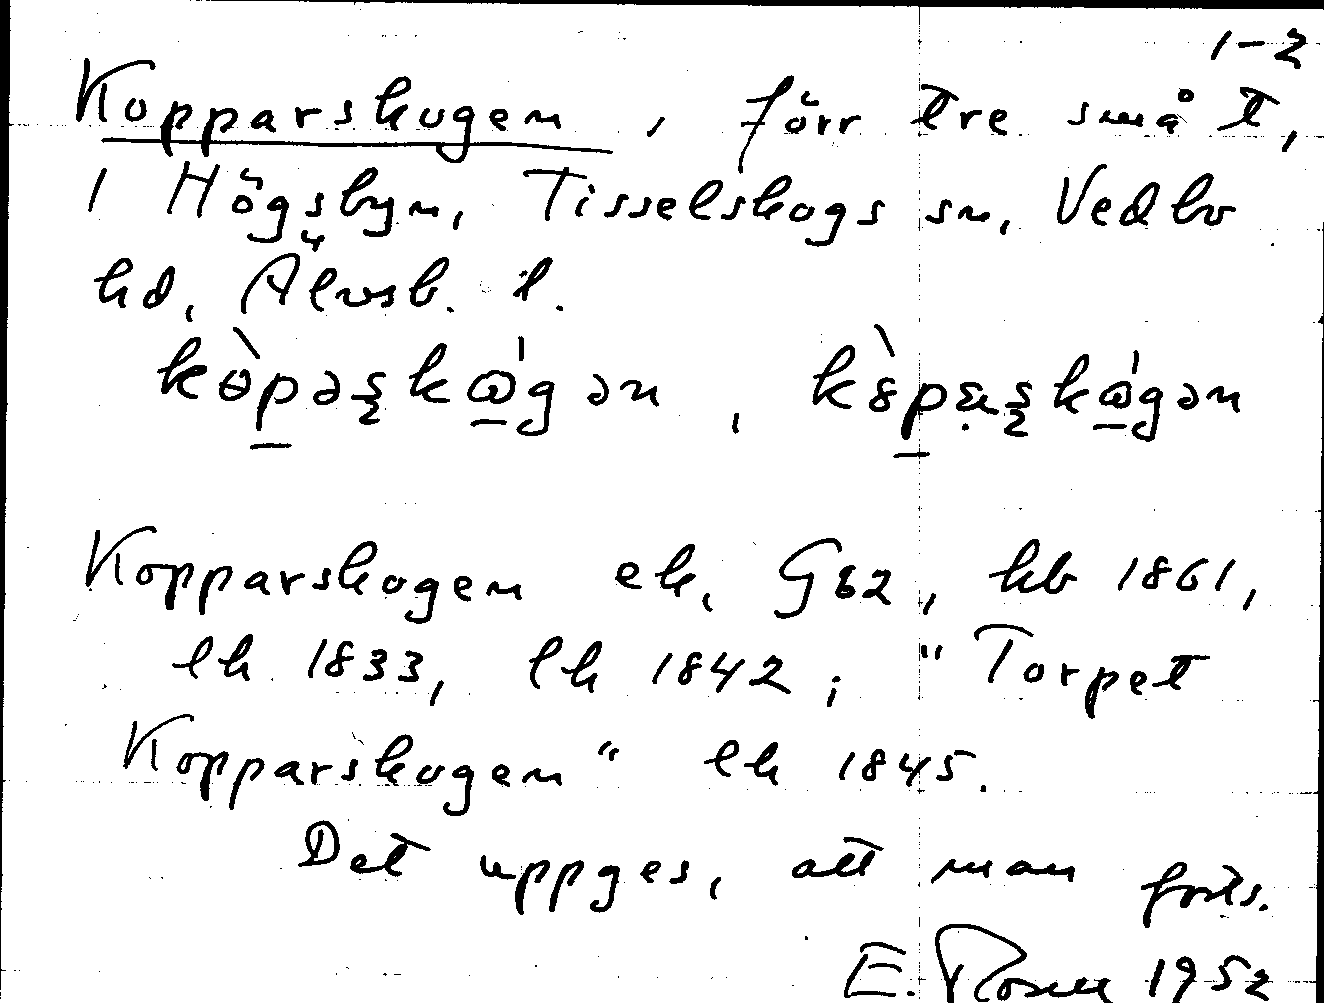 1-2
Kopparskogen, förr tre små t,
i Högsbyn, Tisselskogs sn, Vedbo
hd, Älvsb. l.
Kopparskogen ek, G82, kb 1861,
lh 1833, lh 1842; "Torpet
Kopparskogen" lh 1845.
Det uppges, att man forts.
E. Rosell 1952